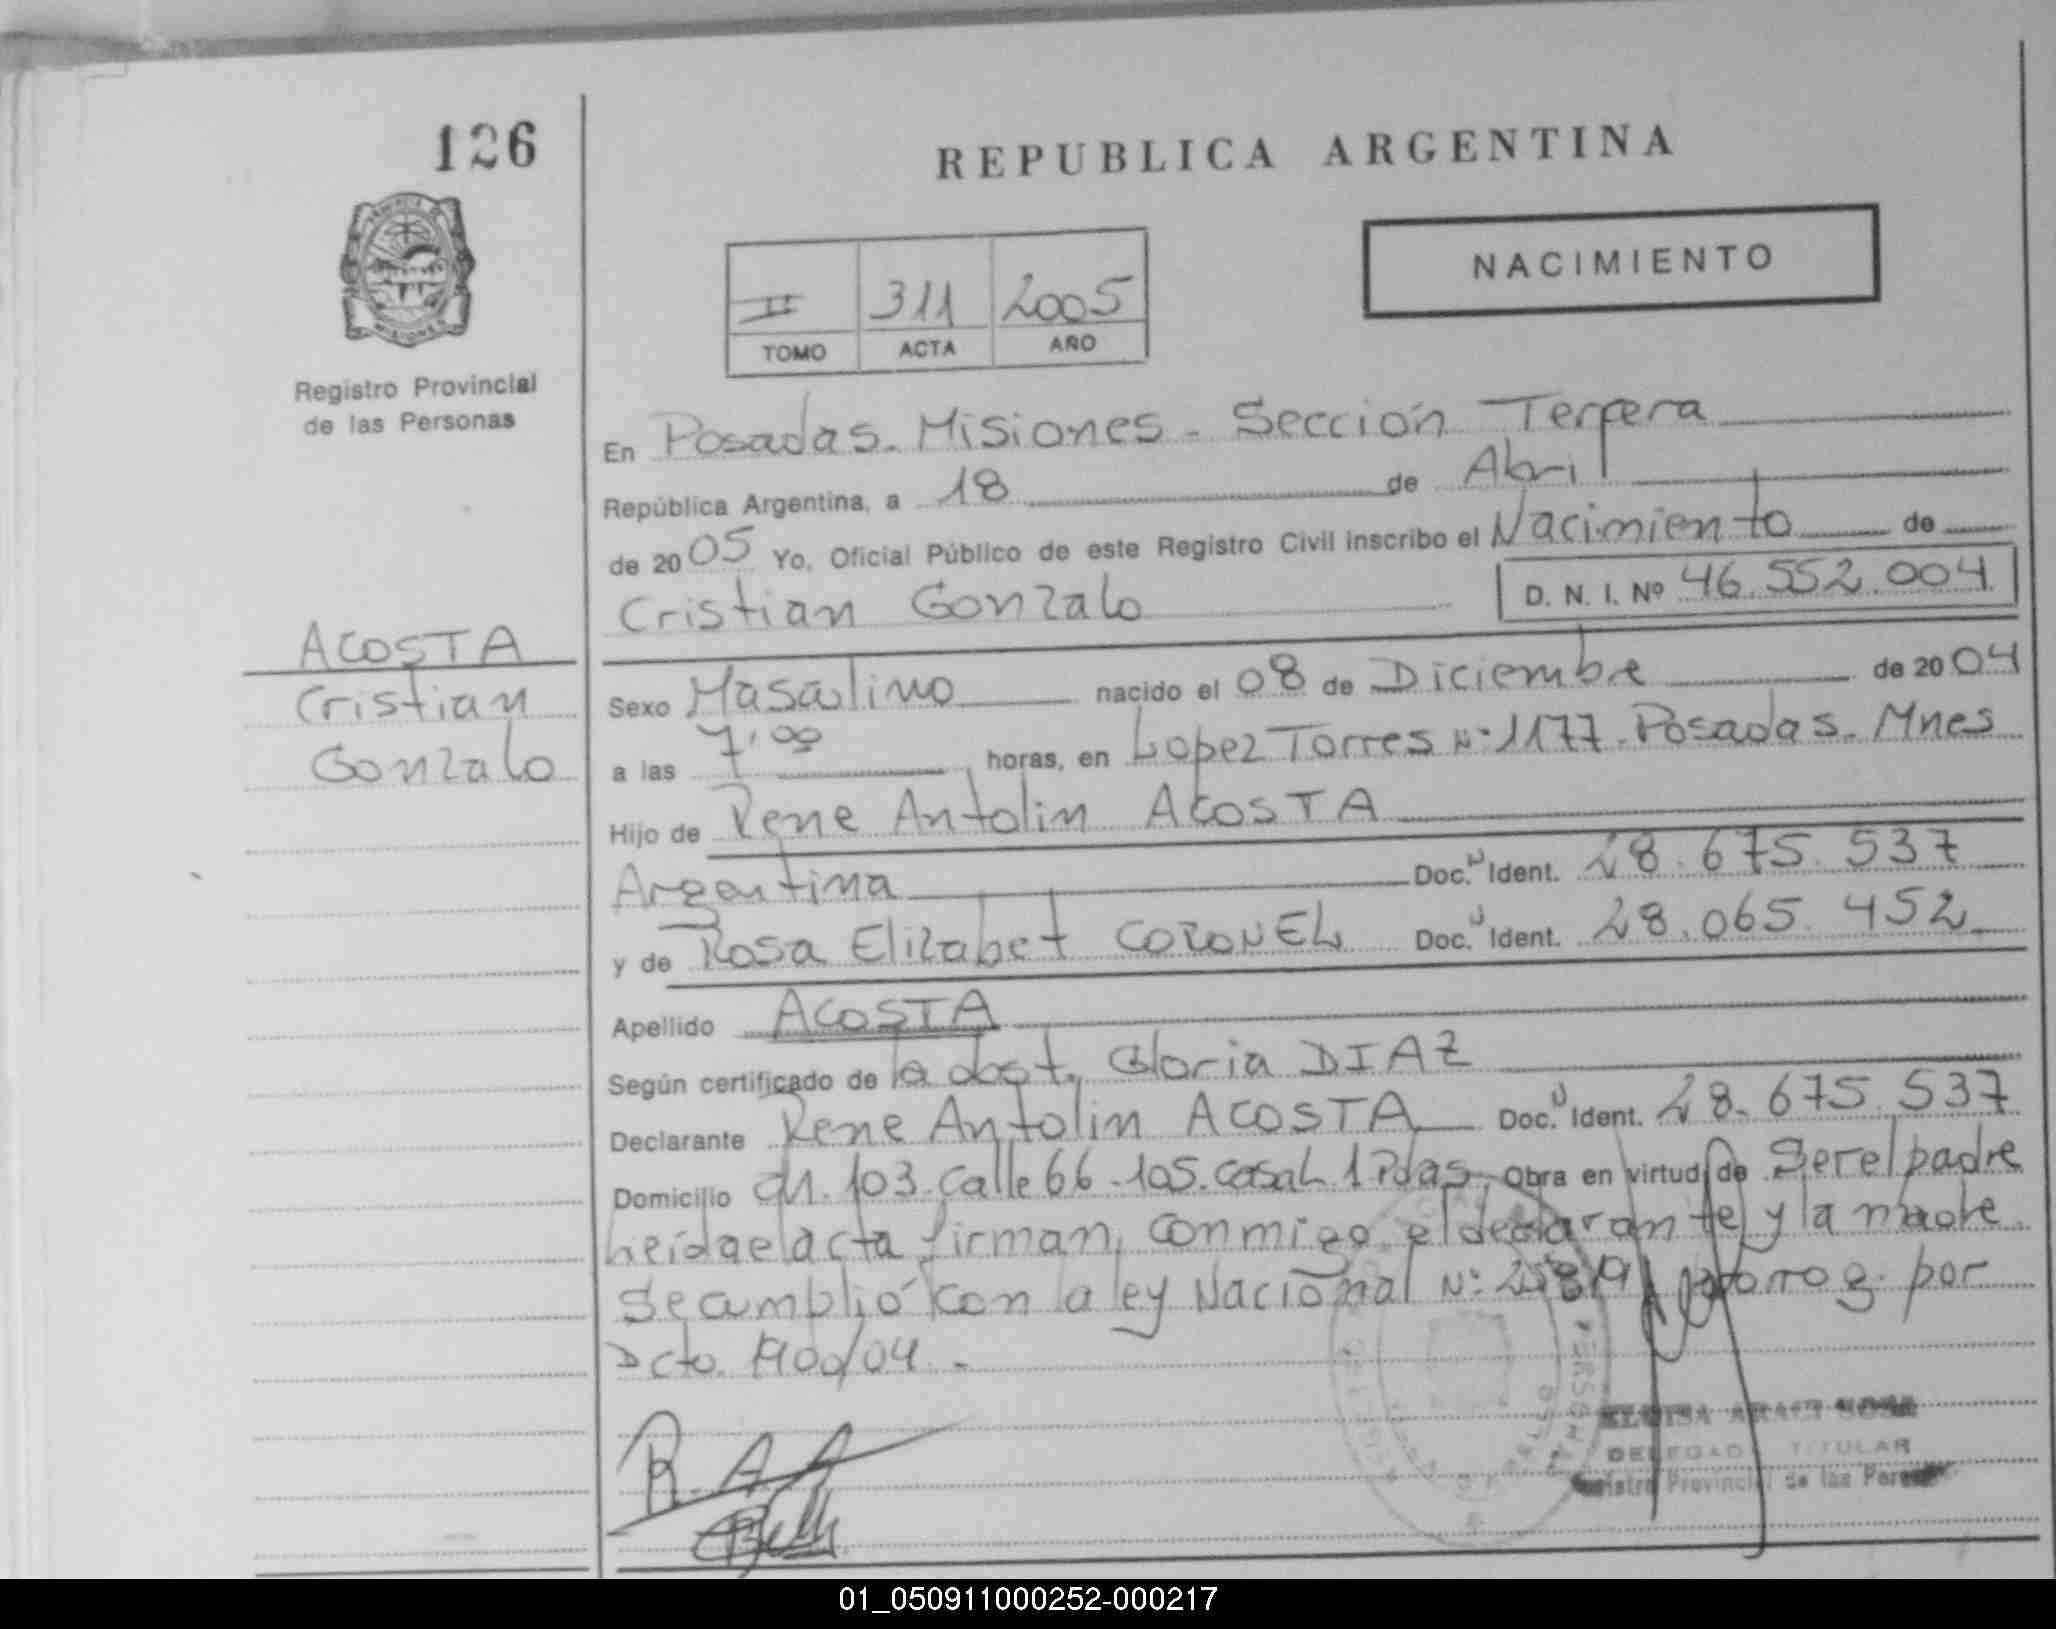 126
REPUBLICA ARGENTINA
NACIMIENTO
II 311 2005
TOMO ACTA AÑO
Registro Provincial
de las Personas
En Posadas. Misiones - Sección Tercera
República Argentina, a 18 de Abril
de 2005 Yo, Oficial Público de este Registro Civil inscribo el Nacimiento de
Cristian Gonzalo D. N. I. Nº 46.552.004
ACOSTA
Cristian
Gonzalo
Sexo Masculino nacido el 08 de Diciembre de 2004
a las 7,00 horas, en Lopez Torres Nº 1177. Posadas. Mnes
Hijo de Rene Antolin ACOSTA
Argentina Doc. Ident. 28.675.537
y de Rosa Elizabet CORONEL Doc. Ident. 28.065.452
Apellido ACOSTA
Según certificado de la obst. Gloria DIAZ
Declarante Rene Antolin ACOSTA Doc. Ident. 28.675.537
Domicilio CH. 103. Calle 66 - 105. casa 1 Pdas. Obra en virtud de Ser el padre
Leida el acta firman conmigo el declarante y la madre
Se cumplió con la ley Nacional Nº prorrog. por
Dcto. /04.-
R.A.A
ELOISA ARACI SOSA
DELEGADA TITULAR
Registro Provincial de las Personas
01_050911000252-000217